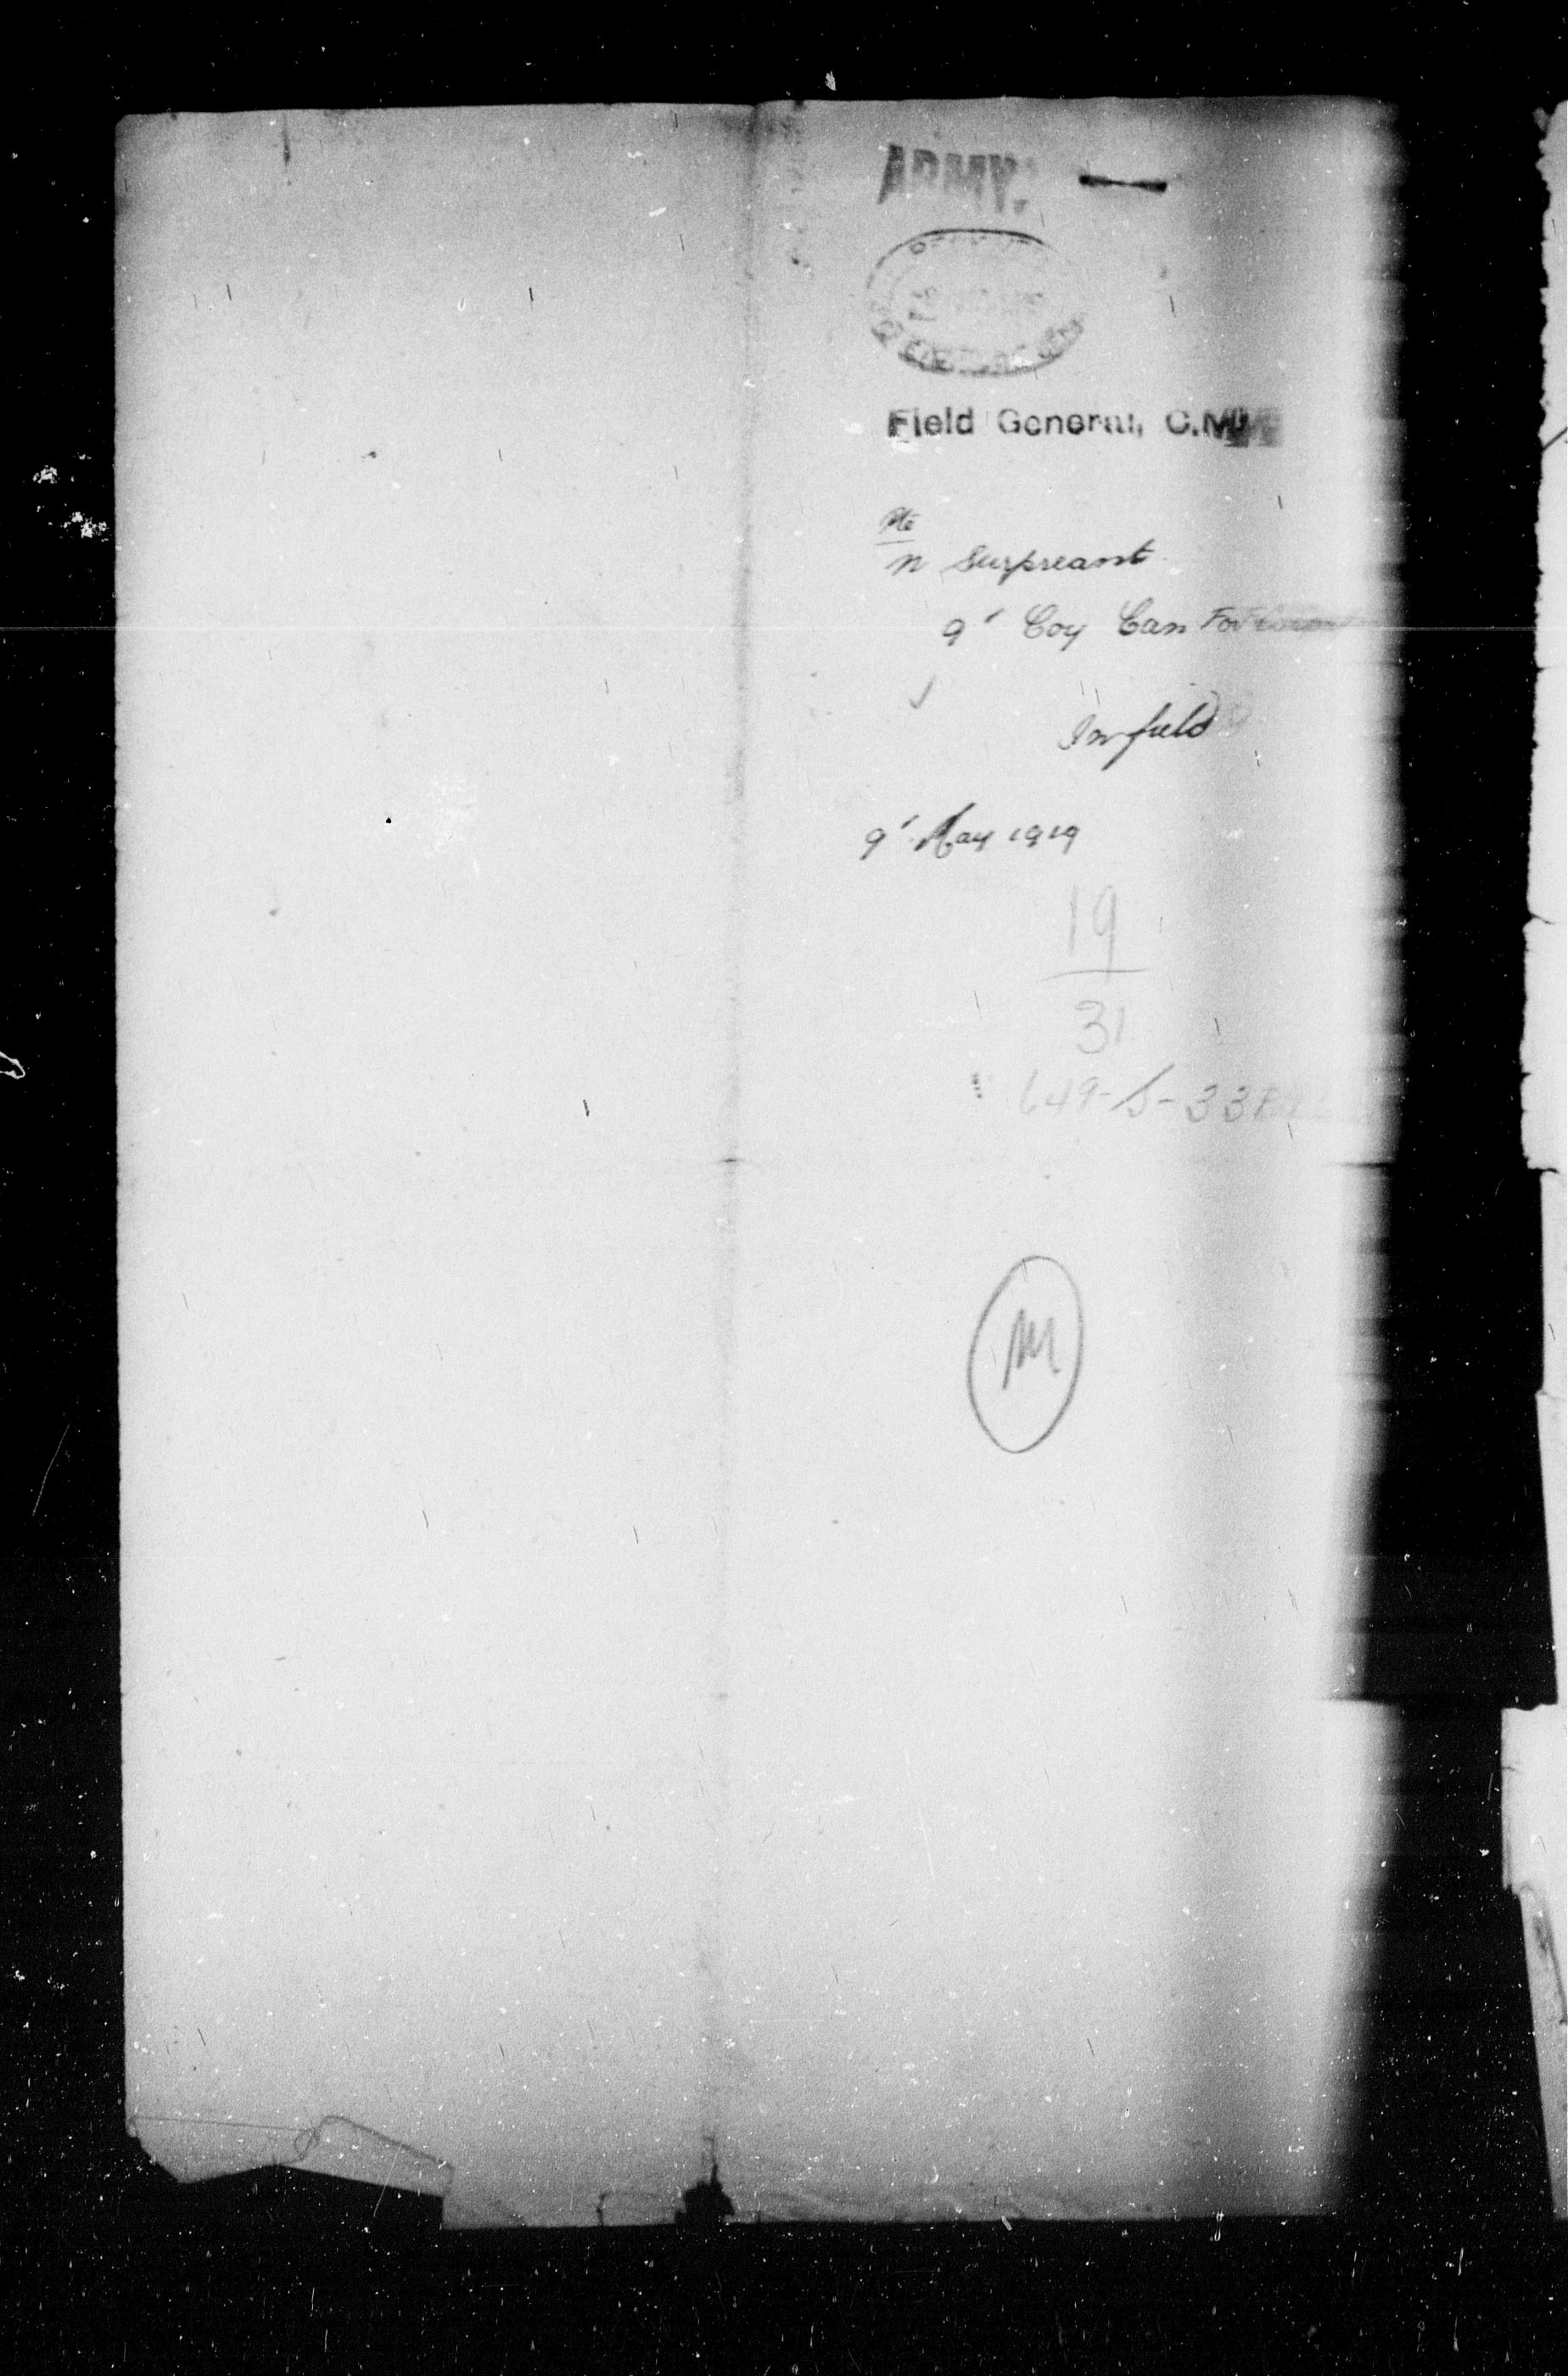 ARMY.
Field General, C.M.
Pte
N Surpreant
9' Coy Can For
In field
9' May 1919
19
31
649-S-33
M